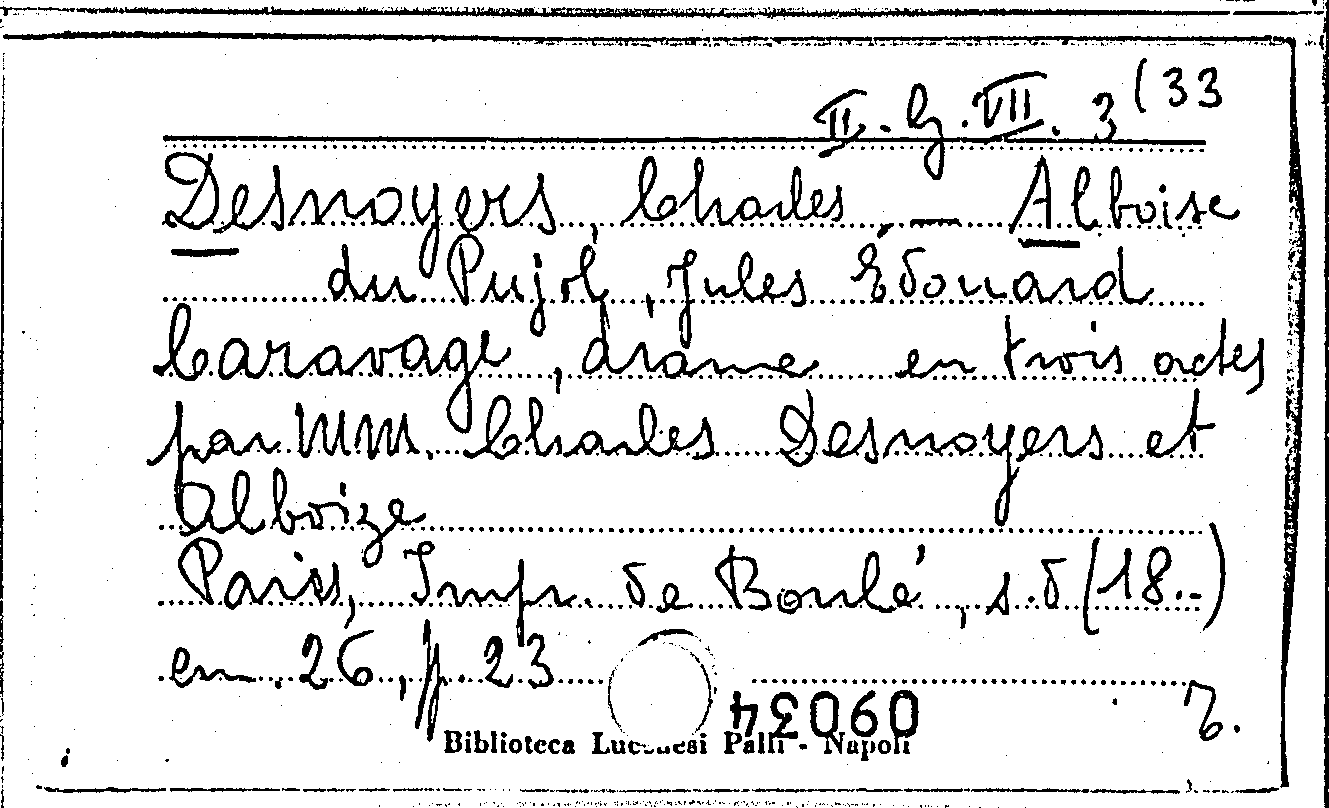 II. G. VII. 3 (33
Desnoyers, Charles, — Alboise
du Pujol, Jules Edouard
Caravage, drame en trois actes
par MM. Charles Desnoyers et
Alboize
Paris, Impr. de Boulé, s.d (18..)
cm. 26, p. 23
09034
Biblioteca Lucchesi Palli - Napoli